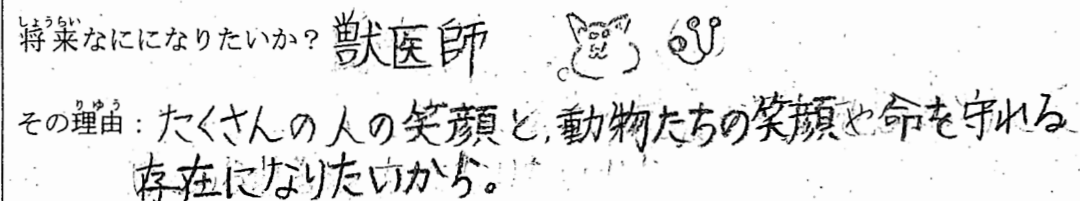 将来なにになりたいか？獣医師
その理由：たくさんの人の笑顔と、動物たちの笑顔や命を守れる
存在になりたいから。